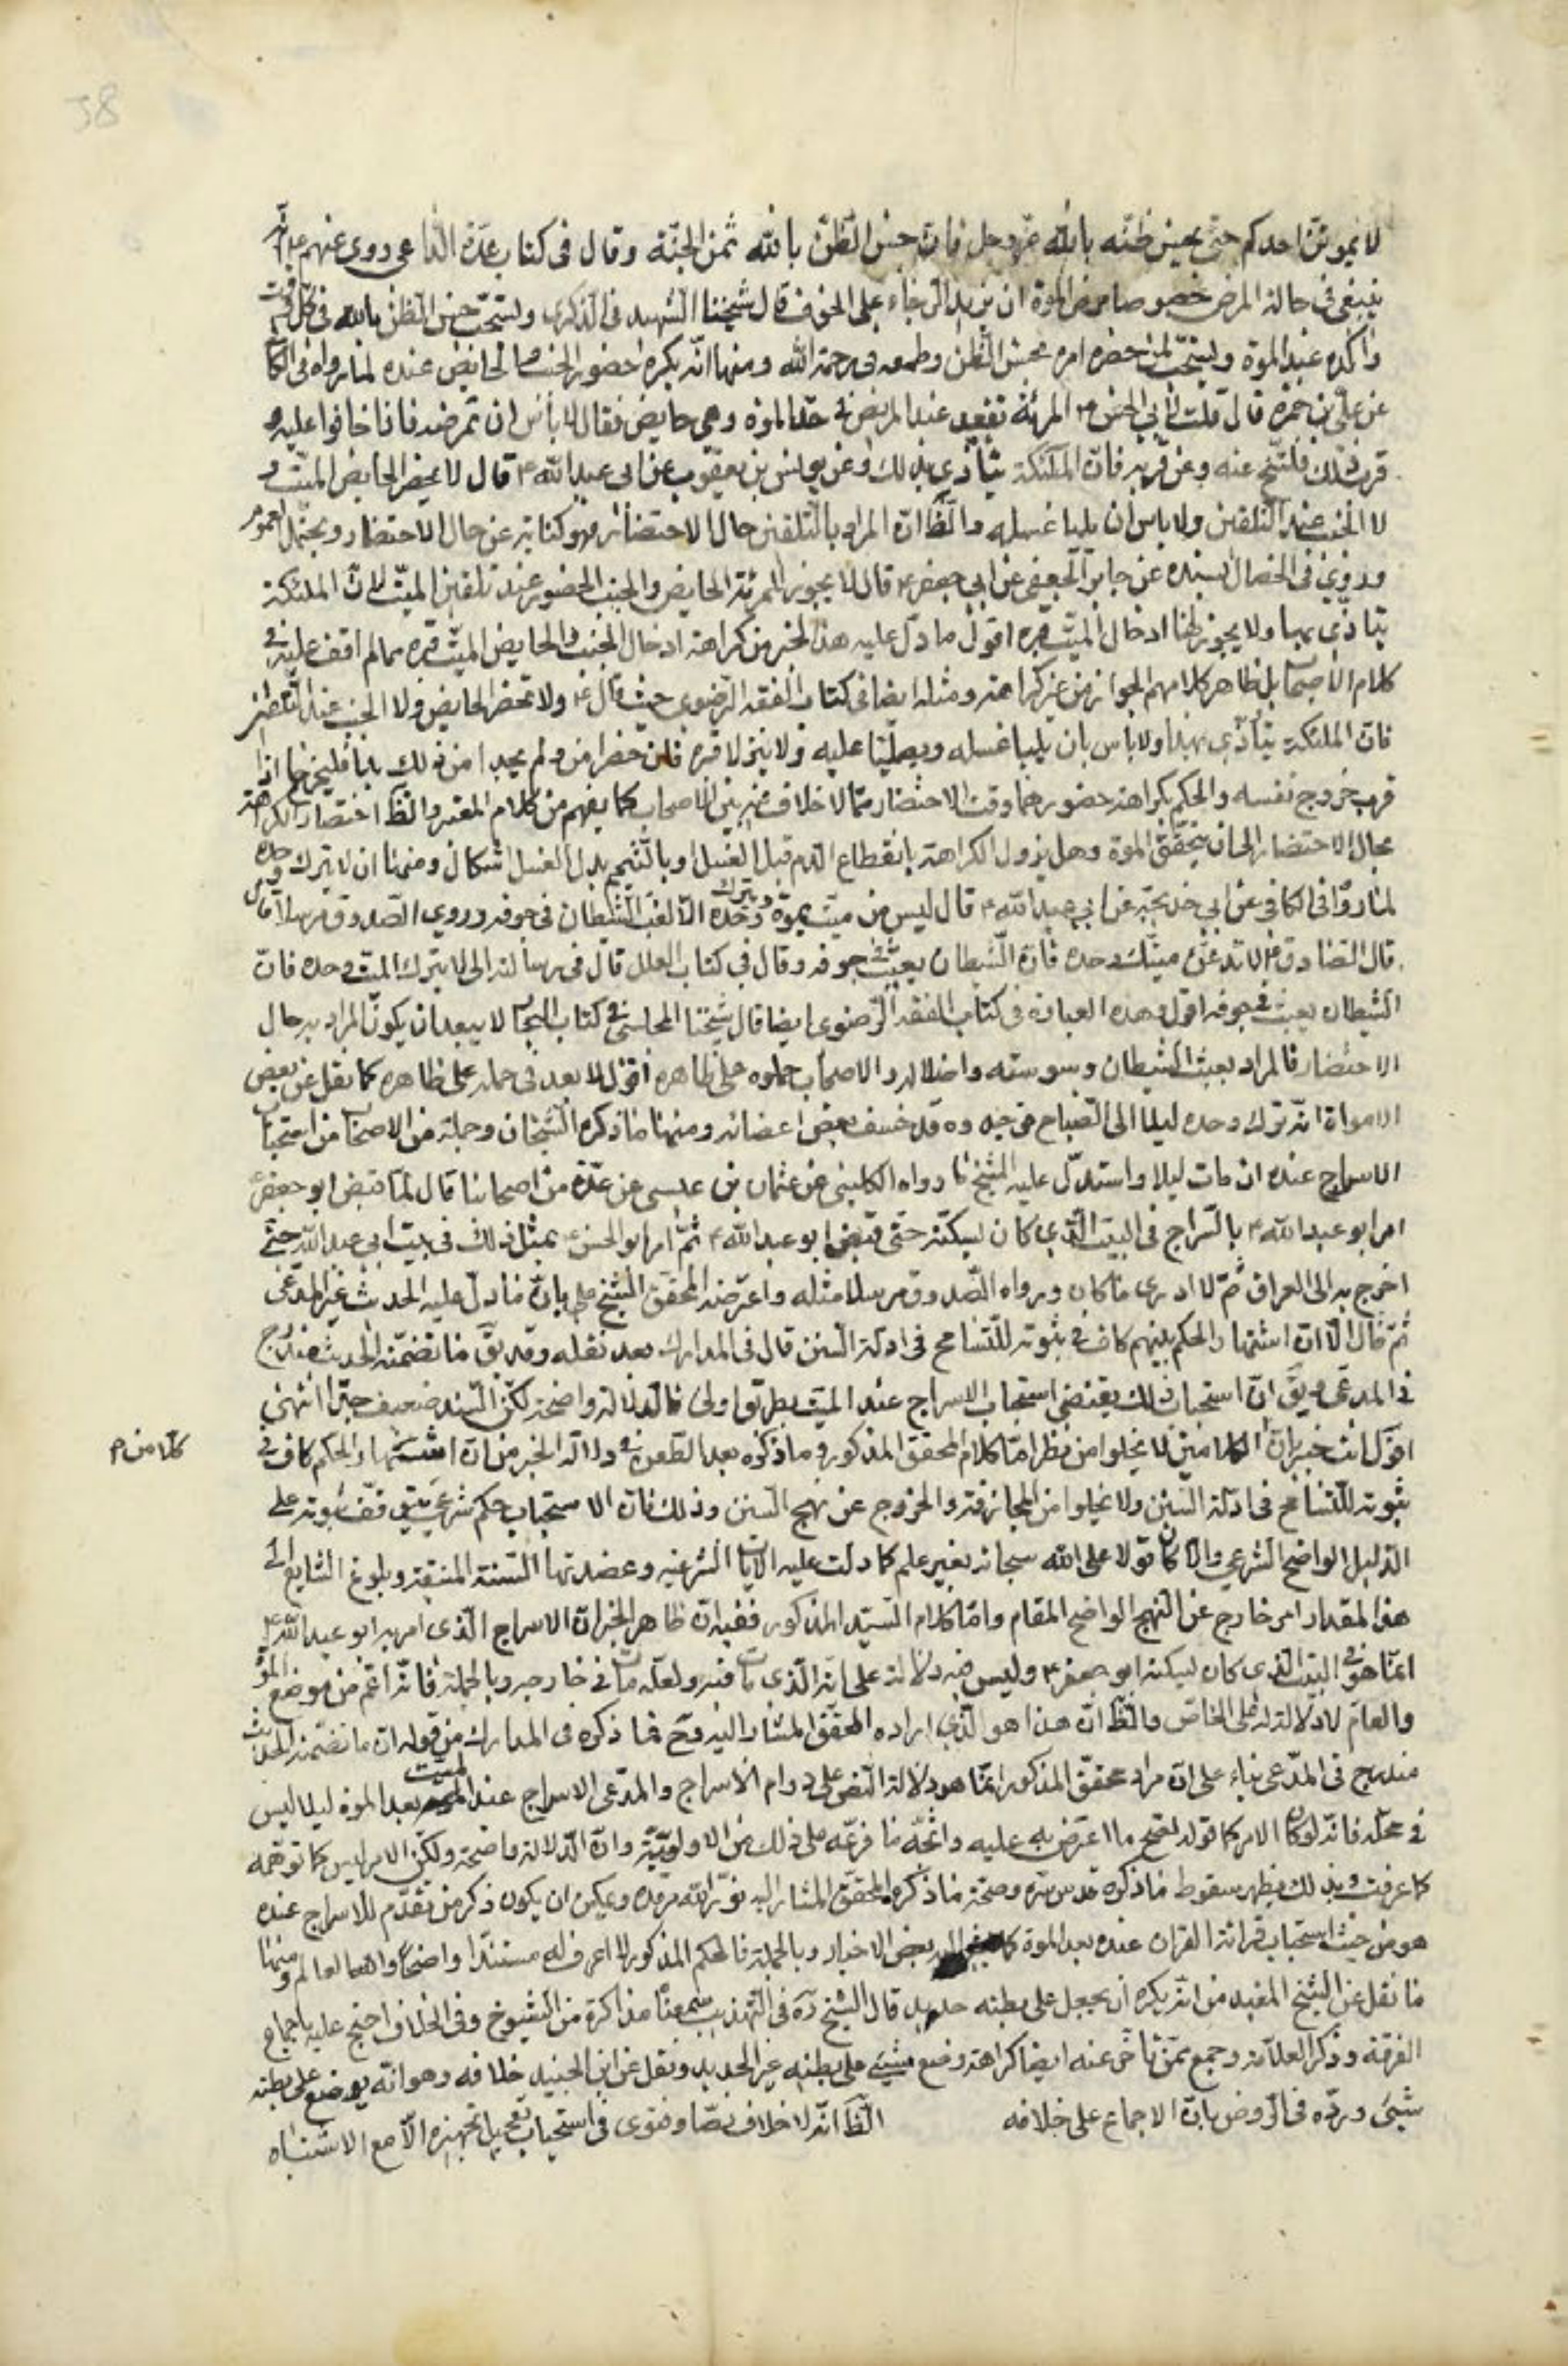 38
لا يموتن احدكم حتى يحسن ظنه بالله عزوجل فان حسن الظن بالله ثمن الجنة وقال في كتاب عدة الداعي روى عنهم ع انه
ينبغي في حالة المرض خصوصا مرض الموت ان يزيد الرجاء على الخوف قال شيخنا الشهيد في الذكرى ويستحب حسن الظن بالله في كل وقت
واكده عند الموت ويستحب لمن حضره امره بحسن الظن وطمعه في رحمة الله ومنها انه يكره حضور الجنب والحائض عنده لما رواه في الكا
عن علي بن حمزة قال قلت لابي الحسن ع المرئة تقعد عند المريض في حد الموت وهي حايض فقال لا باس ان تمرضه فاذا خافوا عليه و
قرب ذلك فلتنح عنه وعن قربه فان الملئكة يتأذى بذلك وعن يونس بن يعقوب عن ابي عبد الله ع قال لا يحضر الحايض الميت و
لا الجنب عند التلقين ولا باس ان يليا غسله والظ ان المراد بالتلقين حال الاحتضار فهو كناية عن حال الاحتضار ويحتمل العموم
وروى في الخصال بسنده عن جابر الجعفي عن ابي جعفر ع قال لا يجوز للمرئة الحايض والجنب الحضور عند تلقين الميت لان الملئكة
يتاذى بهما ولا يجوز لهما ادخال الميت قبره اقول ما دل عليه هذا الخبر من كراهة ادخال الجنب والحايض الميت قبره مما لم اقف عليه في
كلام الاصحاب بل ظاهر كلامهم الجواز من غير كراهة ومثله ايضا في كتاب الفقه الرضوي حيث قال ع ولا تحضر الحايض ولا الجنب عند التلقين
فان الملئكة يتأذى بهما ولا باس بان يليا غسله ويصليا عليه ولا ينزلا قبره فان حضرا من ولم يجدا من ذلك بدا فليخرجا اذا
قرب خروج نفسه والحكم بكراهة حضورهما وقت الاحتضار مما لا خلاف فيه بين الاصحاب كما يفهم من كلام المعتبر والظ اختصار الكراهة
بحال الاحتضار الى ان يتحقق الموت وهل يزول الكراهة بانقطاع الدم قبل الغسل او بالتيمم بدل الغسل اشكال ومنها ان لا يترك وحده
لما رواه في الكافي عن ابي خديجة عن ابي عبد الله ع قال ليس من ميت يموت ويترك وحده الا لعب الشيطان في جوفه وروى الصدوق مرسلا قال
قال الصادق ع لا تدعن ميتك وحده فان الشيطان يعبث في جوفه وقال في كتاب العلل قال في رسالته الي لا يترك الميت وحده فان
الشيطان يعبث في جوفه اقول وهذه العبارة في كتاب الفقه الرضوي ايضا قال شيخنا المجلسي في كتاب البحار لا يبعد ان يكون المراد به حال
الاحتضار فالمراد بعبث الشيطان وسوسته واضلاله والاصحاب حملوه على ظاهره اقول لا بعد في حمله على ظاهره كما نقل عن بعض
الاموات انه ترك وحده ليلا الى الصباح فوجدوه قد خسف بعض اعضائه ومنها ما ذكره الشيخان وجملة من الاصحاب من استحباب
الاسراج عنده ان مات ليلا واستدل عليه الشيخ بما رواه الكليني عن عثمان بن عيسى عن عدة من اصحابنا قال لما قبض ابو جعفر ع
امر ابو عبد الله ع بالسراج في البيت الذي كان يسكنه حتى قبض ابو عبد الله ع ثم امر ابو الحسن ع بمثل ذلك في بيت ابي عبد الله حتى
اخرج به الى العراق ثم لا ادرى ما كان ورواه الصدوق مرسلا مثله واعترضه المحقق الشيخ علي بان ما دل عليه الحديث غير المدعى
ثم قال الا ان اشتهار الحكم بينهم كاف في ثبوته للتسامح في ادلة السنن قال في المدارك بعد نقله وقد يق ما تضمنه الحديث مندرج
في المدعى ويق ان استحباب ذلك يقتضي استحباب الاسراج عند الميت بطريق اولى فالدلالة واضحة لكن السند ضعيف جدا انتهى
اقول انت خبير بان الكلامين لا يخلوا من نظر اما كلام المحقق المذكور وما ذكره بعد الطعن في دلالة الخبر من ان اشتهار الحكم كاف في
كلا من م
ثبوته للتسامح في ادلة السنن ولا يخلوا من المجازفة والخروج عن نهج السنن وذلك فان الاستحباب حكم شرعي يتوقف ثبوته على
الدليل الواضح الشرعي والا كان قولا على الله سبحانه بغير علم كما دلت عليه الايات الشرعية وعضدتها السنة المنيفة وبلوغ الشايع الى
هذا المقدار امر خارج عن النهج الواضح المقام واما كلام السيد المذكور ففيه ان ظاهر الخبر ان الاسراج الذي امر به ابو عبد الله ع
انما هو في البيت الذي كان يسكنه ابو جعفر ع وليس فيه دلالة على انه الذي مات فيه ولعله مات في خارجه وبالجملة فانه اعم من موضع الموت
والعام لا دلالة له على الخاص والظ ان هذا هو الذي اراده المحقق المشار اليه وح فما ذكره في المدارك من قوله ان ما تضمنه الحديث
مندرج في المدعى بناء على ان مراد محقق المذكور انما هو دلالة النص على دوام الاسراج والمدعى الاسراج عند الميت بعد الموت ليلا ليس
في محله فانه لو كان الامر كما توله لصح ما اعترض به عليه واتجه ما فرعه على ذلك من الاولوية وان الدلالة واضحة ولكن الامر ليس كما توهمه
كما عرفت وبذلك يظهر سقوط ما ذكره قدس سره وصحة ما ذكره المحقق المشار اليه نور الله مرقده ويمكن ان يكون ذكر من تقدم للاسراج عنده
هو من حيث استحباب قرائة القران عنده بعد الموت كما اليه بعض الاخبار وبالجملة فالحكم المذكور لا اعرف له مستندا واضحا والله العالم ومنها
ما نقل عن الشيخ المفيد من انه يكره ان يجعل على بطنه حديد قال الشيخ ره في التهذيب سمعنا مذاكرة من الشيوخ وفي الخلاف احتج عليه باجماع
الفرقة وذكر العلامة وجمع ممن تاخر عنه ايضا كراهة وضع شيء على بطنه غير الحديد ونقل عن ابن الجنيد خلافه وهو انه يوضع على بطنه
شيء ورده في الروض بان الاجماع على خلافه الظ انه لا خلاف نصا وفتوى في استحباب تعجيل تجهيزه الا مع الاشتباه